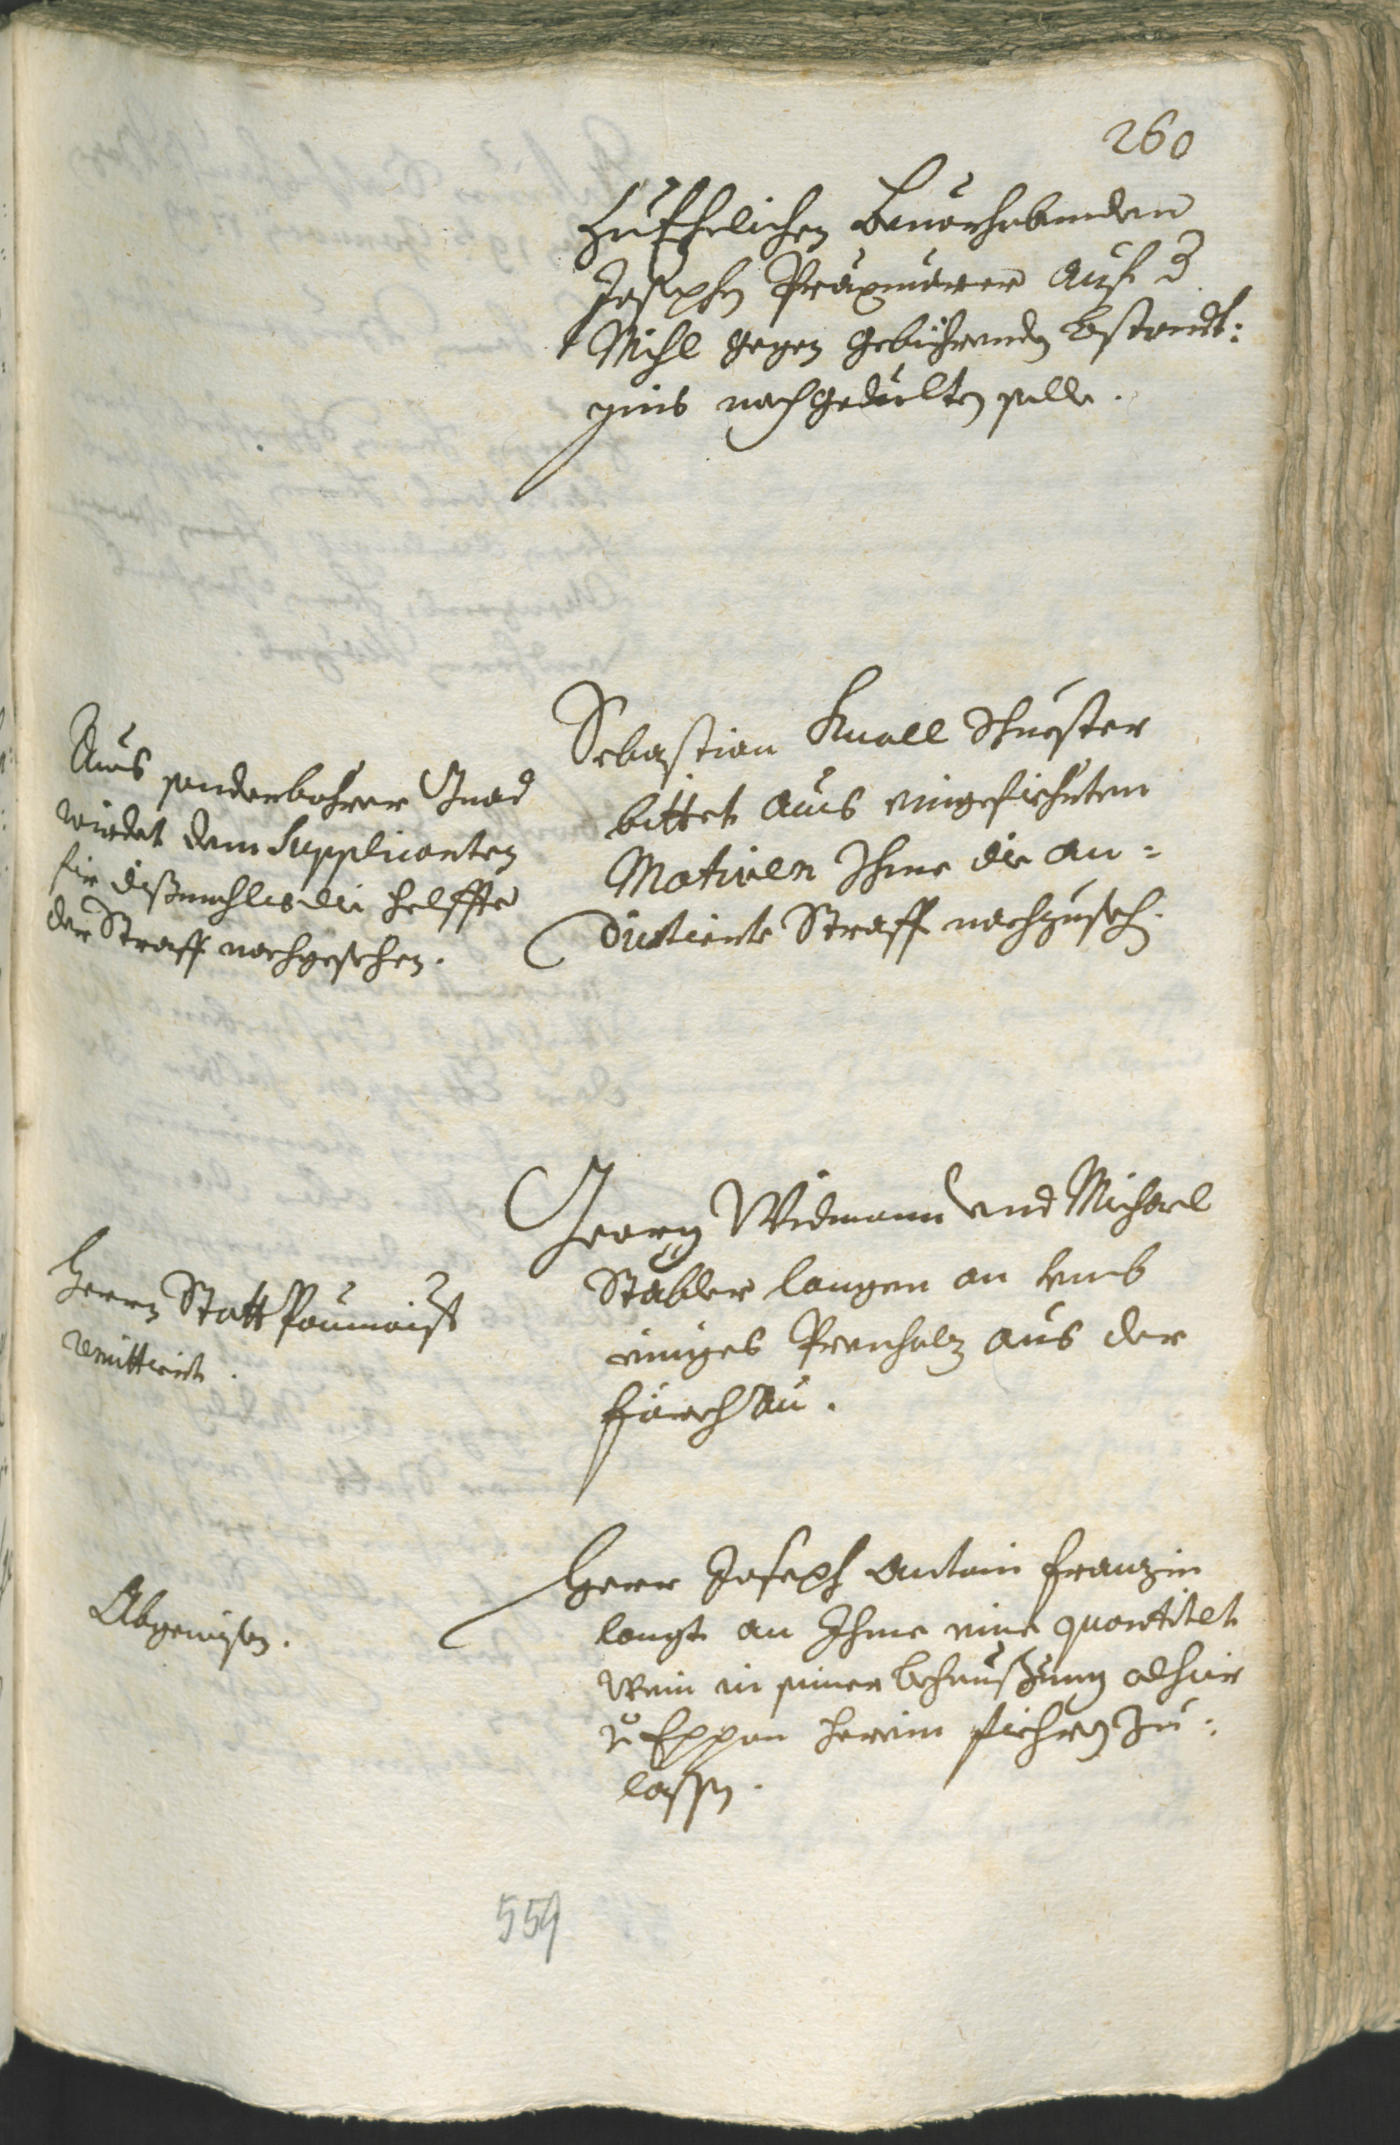 260
zu Ehelichen bevorhabenden
Josephen Praxmarer auf d.
Mihl gegen gebührenden bestandt:
zins noch gedulten solle.
Sebastian Knoll Schuester
bittet aus eingefiehrten
Motiven Ihme die an=
dictierte Straff nachzuseh.
Aus sonderbahrer Gnad
wirdet dem Supplicanten
für dißmahles die helffte
der Straff nachgesehen.
Georg Widmann und Michael
Stäbler langen an umb
einiges Prenholz aus der
Herrn Statt Paumaist
remittiert.
Herr Joseph Antoni Franzin
langt an Ihme eine quantitet
Wein in seiner behaußung alhier
v: Eppan herein fiehren zu=
lassen.
Abgewisen.
559